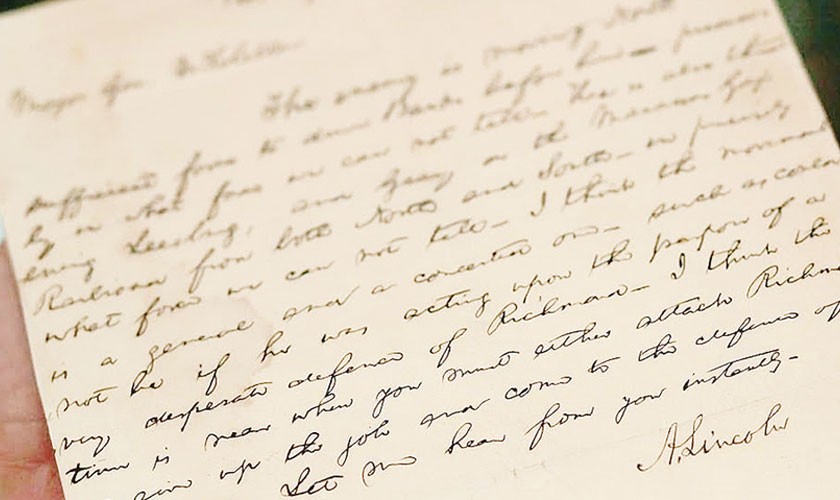 Major Gen. McClellan
The enemy is moving North
sufficient force to drive Banks before him — precise
ly in what force we can not tell. He is also threat
ening Leesburg, and Geary on the Manassas Gap
Railroad from both North and South — in precisely
what force we can not tell — I think the movement
is a general and a concerted one — such as could
not be if he was acting upon the purpose of a
very desperate defence of Richmond — I think the
time is near when you must either attack Richm
give up the job and come to the defence of
Let me hear from you instantly —
A. Lincoln